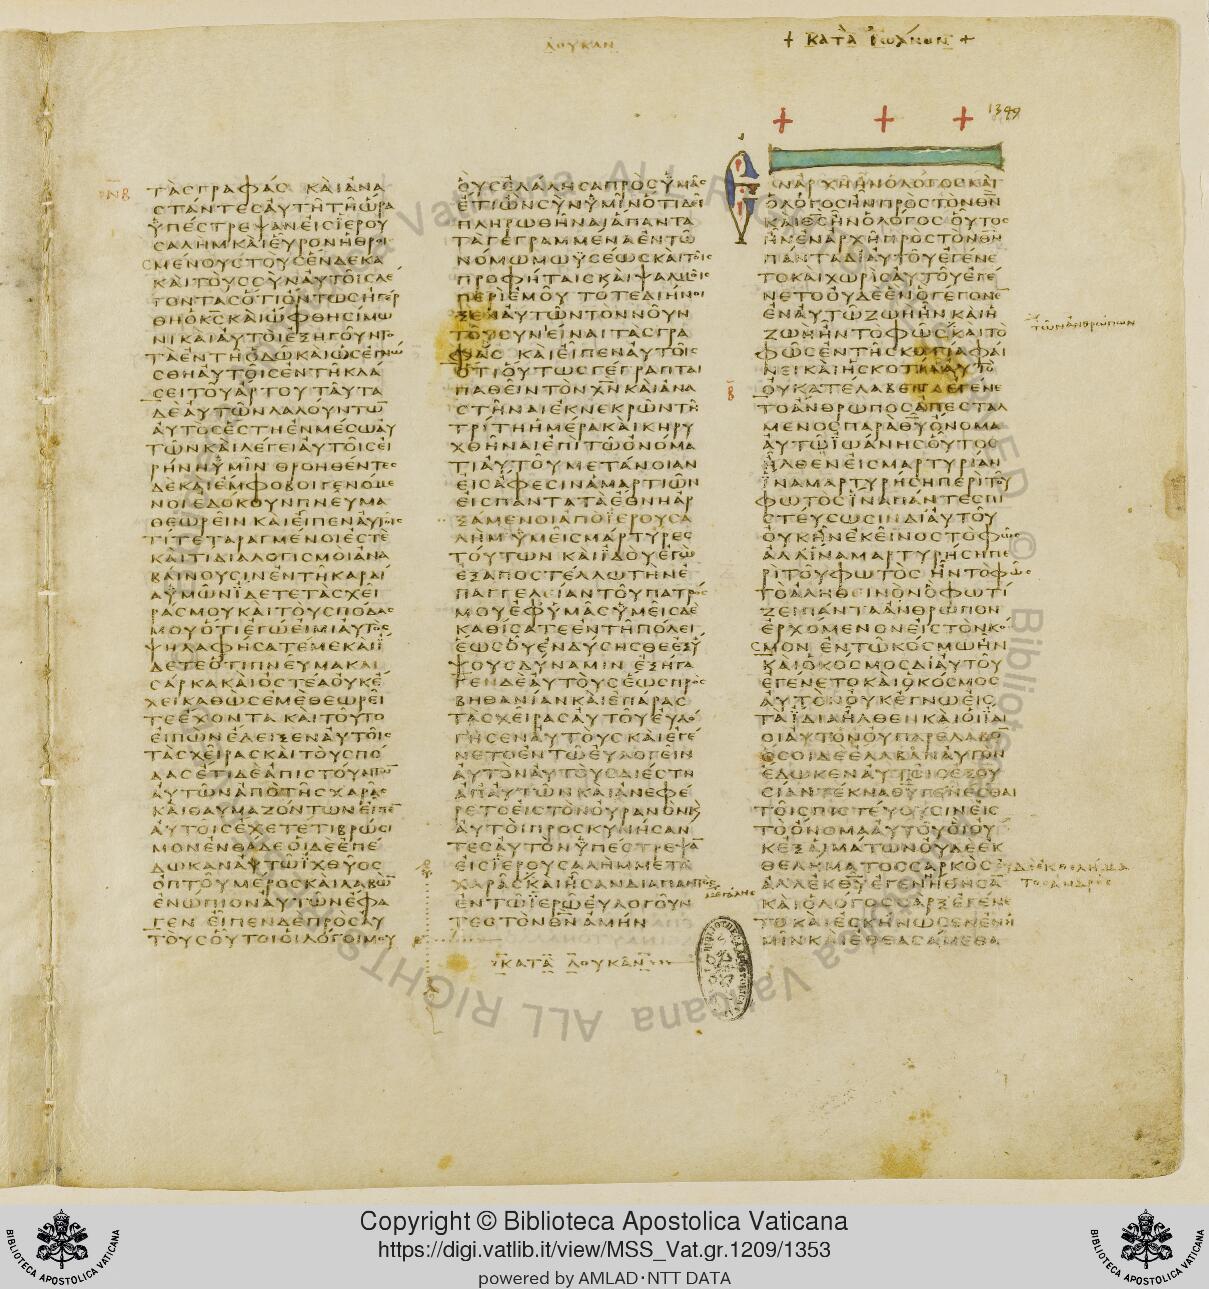 ΛΟΥΚΑΝ
+ ΚΑΤΑ ΙΩΑΝΝΗΝ +
1349
ΤΑΣ ΓΡΑΦΑΣ ΚΑΙ ΑΝΑ
ΣΤΑΝΤΕΣ ΑΥΤΗ ΤΗ ΩΡΑ
ΥΠΕΣΤΡΕΨΑΝ ΕΙΣ ΙΕΡΟΥ
ΣΑΛΗΜ ΚΑΙ ΕΥΡΟΝ ΗΘΡΟΙ
ΣΜΕΝΟΥΣ ΤΟΥΣ ΕΝΔΕΚΑ
ΚΑΙ ΤΟΥΣ ΣΥΝ ΑΥΤΟΙΣ ΛΕ
ΓΟΝΤΑΣ ΟΤΙ ΟΝΤΩΣ ΗΓΕΡ
ΘΗ Ο ΚΣ ΚΑΙ ΩΦΘΗ ΣΙΜΩ
ΝΙ ΚΑΙ ΑΥΤΟΙ ΕΞΗΓΟΥΝΤΟ
ΤΑ ΕΝ ΤΗ ΟΔΩ ΚΑΙ ΩΣ ΕΓΝΩ
ΣΘΗ ΑΥΤΟΙΣ ΕΝ ΤΗ ΚΛΑ
ΣΕΙ ΤΟΥ ΑΡΤΟΥ ΤΑΥΤΑ
ΔΕ ΑΥΤΩΝ ΛΑΛΟΥΝΤΩ
ΑΥΤΟΣ ΕΣΤΗ ΕΝ ΜΕΣΩ ΑΥ
ΤΩΝ ΚΑΙ ΛΕΓΕΙ ΑΥΤΟΙΣ ΕΙ
ΡΗΝΗ ΥΜΙΝ ΘΡΟΗΘΕΝΤΕΣ
ΔΕ ΚΑΙ ΕΜΦΟΒΟΙ ΓΕΝΟΜΕ
ΝΟΙ ΕΔΟΚΟΥΝ ΠΝΕΥΜΑ
ΘΕΩΡΕΙΝ ΚΑΙ ΕΙΠΕΝ ΑΥΤΟΙΣ
ΤΙ ΤΕΤΑΡΑΓΜΕΝΟΙ ΕΣΤΕ
ΚΑΙ ΤΙ ΔΙΑΛΟΓΙΣΜΟΙ ΑΝΑ
ΒΑΙΝΟΥΣΙΝ ΕΝ ΤΗ ΚΑΡΔΙ
Α ΥΜΩΝ ΙΔΕΤΕ ΤΑΣ ΧΕΙ
ΡΑΣ ΜΟΥ ΚΑΙ ΤΟΥΣ ΠΟΔΑΣ
ΜΟΥ ΟΤΙ ΕΓΩ ΕΙΜΙ ΑΥΤΟΣ
ΨΗΛΑΦΗΣΑΤΕ ΜΕ ΚΑΙ Ϊ
ΔΕΤΕ ΟΤΙ ΠΝΕΥΜΑ ΚΑΙ
ΣΑΡΚΑ ΚΑΙ ΟΣΤΕΑ ΟΥΚ Ε
ΧΕΙ ΚΑΘΩΣ ΕΜΕ ΘΕΩΡΕΙ
ΤΕ ΕΧΟΝΤΑ ΚΑΙ ΤΟΥΤΟ
ΕΙΠΩΝ ΕΔΕΙΞΕΝ ΑΥΤΟΙΣ
ΤΑΣ ΧΕΙΡΑΣ ΚΑΙ ΤΟΥΣ ΠΟ
ΔΑΣ ΕΤΙ ΔΕ ΑΠΙΣΤΟΥΝΤΩ
ΑΥΤΩΝ ΑΠΟ ΤΗΣ ΧΑΡΑΣ
ΚΑΙ ΘΑΥΜΑΖΟΝΤΩΝ ΕΙΠΕ
ΑΥΤΟΙΣ ΕΧΕΤΕ ΤΙ ΒΡΩΣΙ
ΜΟΝ ΕΝΘΑΔΕ ΟΙ ΔΕ ΕΠΕ
ΔΩΚΑΝ ΑΥΤΩ ΙΧΘΥΟΣ
ΟΠΤΟΥ ΜΕΡΟΣ ΚΑΙ ΛΑΒΩ
ΕΝΩΠΙΟΝ ΑΥΤΩΝ ΕΦΑ
ΓΕΝ ΕΙΠΕΝ ΔΕ ΠΡΟΣ ΑΥ
ΤΟΥΣ ΟΥΤΟΙ ΟΙ ΛΟΓΟΙ ΜΟΥ
ΟΥΣ ΕΛΑΛΗΣΑ ΠΡΟΣ ΥΜΑΣ
ΕΤΙ ΩΝ ΣΥΝ ΥΜΙΝ ΟΤΙ ΔΕΙ
ΠΛΗΡΩΘΗΝΑΙ ΑΠΑΝΤΑ
ΤΑ ΓΕΓΡΑΜΜΕΝΑ ΕΝ ΤΩ
ΝΟΜΩ ΜΩΥΣΕΩΣ ΚΑΙ ΤΟΙΣ
ΠΡΟΦΗΤΑΙΣ ΚΑΙ ΨΑΛΜΟΙΣ
ΠΕΡΙ ΕΜΟΥ ΤΟΤΕ ΔΙΗΝΟΙ
ΞΕΝ ΑΥΤΩΝ ΤΟΝ ΝΟΥΝ
ΤΟΥ ΣΥΝΕΙΝΑΙ ΤΑΣ ΓΡΑ
ΦΑΣ ΚΑΙ ΕΙΠΕΝ ΑΥΤΟΙΣ
ΟΤΙ ΟΥΤΩΣ ΓΕΓΡΑΠΤΑΙ
ΠΑΘΕΙΝ ΤΟΝ ΧΝ ΚΑΙ ΑΝΑ
ΣΤΗΝΑΙ ΕΚ ΝΕΚΡΩΝ ΤΗ
ΤΡΙΤΗ ΗΜΕΡΑ ΚΑΙ ΚΗΡΥ
ΧΘΗΝΑΙ ΕΠΙ ΤΩ ΟΝΟΜΑ
ΤΙ ΑΥΤΟΥ ΜΕΤΑΝΟΙΑΝ
ΕΙΣ ΑΦΕΣΙΝ ΑΜΑΡΤΙΩΝ
ΕΙΣ ΠΑΝΤΑ ΤΑ ΕΘΝΗ ΑΡ
ΞΑΜΕΝΟΙ ΑΠΟ ΙΕΡΟΥΣΑ
ΛΗΜ ΥΜΕΙΣ ΜΑΡΤΥΡΕΣ
ΤΟΥΤΩΝ ΚΑΙ ΙΔΟΥ ΕΓΩ
ΕΞΑΠΟΣΤΕΛΛΩ ΤΗΝ Ε
ΠΑΓΓΕΛΕΙΑΝ ΤΟΥ ΠΑΤΡΟΣ
ΜΟΥ ΕΦ ΥΜΑΣ ΥΜΕΙΣ ΔΕ
ΚΑΘΙΣΑΤΕ ΕΝ ΤΗ ΠΟΛΕΙ
ΕΩΣ ΟΥ ΕΝΔΥΣΗΣΘΕ ΕΞ Υ
ΨΟΥΣ ΔΥΝΑΜΙΝ ΕΞΗΓΑ
ΓΕΝ ΔΕ ΑΥΤΟΥΣ ΕΩΣ ΠΡΟΣ
ΒΗΘΑΝΙΑΝ ΚΑΙ ΕΠΑΡΑΣ
ΤΑΣ ΧΕΙΡΑΣ ΑΥΤΟΥ ΕΥΛΟ
ΓΗΣΕΝ ΑΥΤΟΥΣ ΚΑΙ ΕΓΕ
ΝΕΤΟ ΕΝ ΤΩ ΕΥΛΟΓΕΙΝ
ΑΥΤΟΝ ΑΥΤΟΥΣ ΔΙΕΣΤΗ
ΑΠ ΑΥΤΩΝ ΚΑΙ ΑΝΕΦΕ
ΡΕΤΟ ΕΙΣ ΤΟΝ ΟΥΡΑΝΟΝ Κ
ΑΥΤΟΙ ΠΡΟΣΚΥΝΗΣΑΝ
ΤΕΣ ΑΥΤΟΝ ΥΠΕΣΤΡΕΨΑ
ΕΙΣ ΙΕΡΟΥΣΑΛΗΜ ΜΕΤΑ
ΧΑΡΑΣ ΚΑΙ ΗΣΑΝ ΔΙΑ ΠΑΝΤΟΣ
ΜΕΓΑΛΗΣ
ΕΝ ΤΩ ΙΕΡΩ ΕΥΛΟΓΟΥΝ
ΤΕΣ ΤΟΝ ΘΝ ΑΜΗΝ
ΚΑΤΑ ΛΟΥΚΑΝ
ΕΝ ΑΡΧΗ ΗΝ Ο ΛΟΓΟΣ ΚΑΙ
Ο ΛΟΓΟΣ ΗΝ ΠΡΟΣ ΤΟΝ ΘΝ
ΚΑΙ ΘΣ ΗΝ Ο ΛΟΓΟΣ ΟΥΤΟΣ
ΗΝ ΕΝ ΑΡΧΗ ΠΡΟΣ ΤΟΝ ΘΝ
ΠΑΝΤΑ ΔΙ ΑΥΤΟΥ ΕΓΕΝΕ
ΤΟ ΚΑΙ ΧΩΡΙΣ ΑΥΤΟΥ ΕΓΕ
ΝΕΤΟ ΟΥΔΕ ΕΝ Ο ΓΕΓΟΝΕ
ΕΝ ΑΥΤΩ ΖΩΗ ΗΝ ΚΑΙ Η
ΖΩΗ ΗΝ ΤΟ ΦΩΣ ΚΑΙ ΤΟ
ΤΩΝ ΑΝΘΡΩΠΩΝ
ΦΩΣ ΕΝ ΤΗ ΣΚΟΤΙΑ ΦΑΙ
ΝΕΙ ΚΑΙ Η ΣΚΟΤΙΑ ΑΥΤΟ
ΟΥ ΚΑΤΕΛΑΒΕΝ ΕΓΕΝΕ
ΤΟ ΑΝΘΡΩΠΟΣ ΑΠΕΣΤΑΛ
ΜΕΝΟΣ ΠΑΡΑ ΘΥ ΟΝΟΜΑ
ΑΥΤΩ ΙΩΑΝΗΣ ΟΥΤΟΣ
ΗΛΘΕΝ ΕΙΣ ΜΑΡΤΥΡΙΑΝ
ΙΝΑ ΜΑΡΤΥΡΗΣΗ ΠΕΡΙ ΤΟΥ
ΦΩΤΟΣ ΙΝΑ ΠΑΝΤΕΣ ΠΙ
ΣΤΕΥΣΩΣΙΝ ΔΙ ΑΥΤΟΥ
ΟΥΚ ΗΝ ΕΚΕΙΝΟΣ ΤΟ ΦΩΣ
ΑΛΛ ΙΝΑ ΜΑΡΤΥΡΗΣΗ ΠΕ
ΡΙ ΤΟΥ ΦΩΤΟΣ ΗΝ ΤΟ ΦΩΣ
ΤΟ ΑΛΗΘΕΙΝΟΝ Ο ΦΩΤΙ
ΖΕΙ ΠΑΝΤΑ ΑΝΘΡΩΠΟΝ
ΕΡΧΟΜΕΝΟΝ ΕΙΣ ΤΟΝ ΚΟ
ΣΜΟΝ ΕΝ ΤΩ ΚΟΣΜΩ ΗΝ
ΚΑΙ Ο ΚΟΣΜΟΣ ΔΙ ΑΥΤΟΥ
ΕΓΕΝΕΤΟ ΚΑΙ Ο ΚΟΣΜΟΣ
ΑΥΤΟΝ ΟΥΚ ΕΓΝΩ ΕΙΣ
ΤΑ ΙΔΙΑ ΗΛΘΕΝ ΚΑΙ ΟΙ ΙΔΙ
ΟΙ ΑΥΤΟΝ ΟΥ ΠΑΡΕΛΑΒΟ
ΟΣΟΙ ΔΕ ΕΛΑΒΑΝ ΑΥΤΟΝ
ΕΔΩΚΕΝ ΑΥΤΟΙΣ ΕΞΟΥ
ΣΙΑΝ ΤΕΚΝΑ ΘΥ ΓΕΝΕΣΘΑΙ
ΤΟΙΣ ΠΙΣΤΕΥΟΥΣΙΝ ΕΙΣ
ΤΟ ΟΝΟΜΑ ΑΥΤΟΥ ΟΙ ΟΥ
Κ ΕΞ ΑΙΜΑΤΩΝ ΟΥΔΕ ΕΚ
ΘΕΛΗΜΑΤΟΣ ΣΑΡΚΟΣ
ΟΥΔΕ ΕΚ ΘΕΛΗΜΑ
ΤΟΣ ΑΝΔΡΟΣ
ΑΛΛ ΕΚ ΘΥ ΕΓΕΝΗΘΗΣΑ
ΚΑΙ Ο ΛΟΓΟΣ ΣΑΡΞ ΕΓΕΝΕ
ΤΟ ΚΑΙ ΕΣΚΗΝΩΣΕΝ ΕΝ Η
ΜΙΝ ΚΑΙ ΕΘΕΑΣΑΜΕΘΑ
Copyright © Biblioteca Apostolica Vaticana
https://digi.vatlib.it/view/MSS_Vat.gr.1209/1353
powered by AMLAD·NTT DATA
BIBLIOTECA APOSTOLICA VATICANA
BIBLIOTECA APOSTOLICA VATICANA